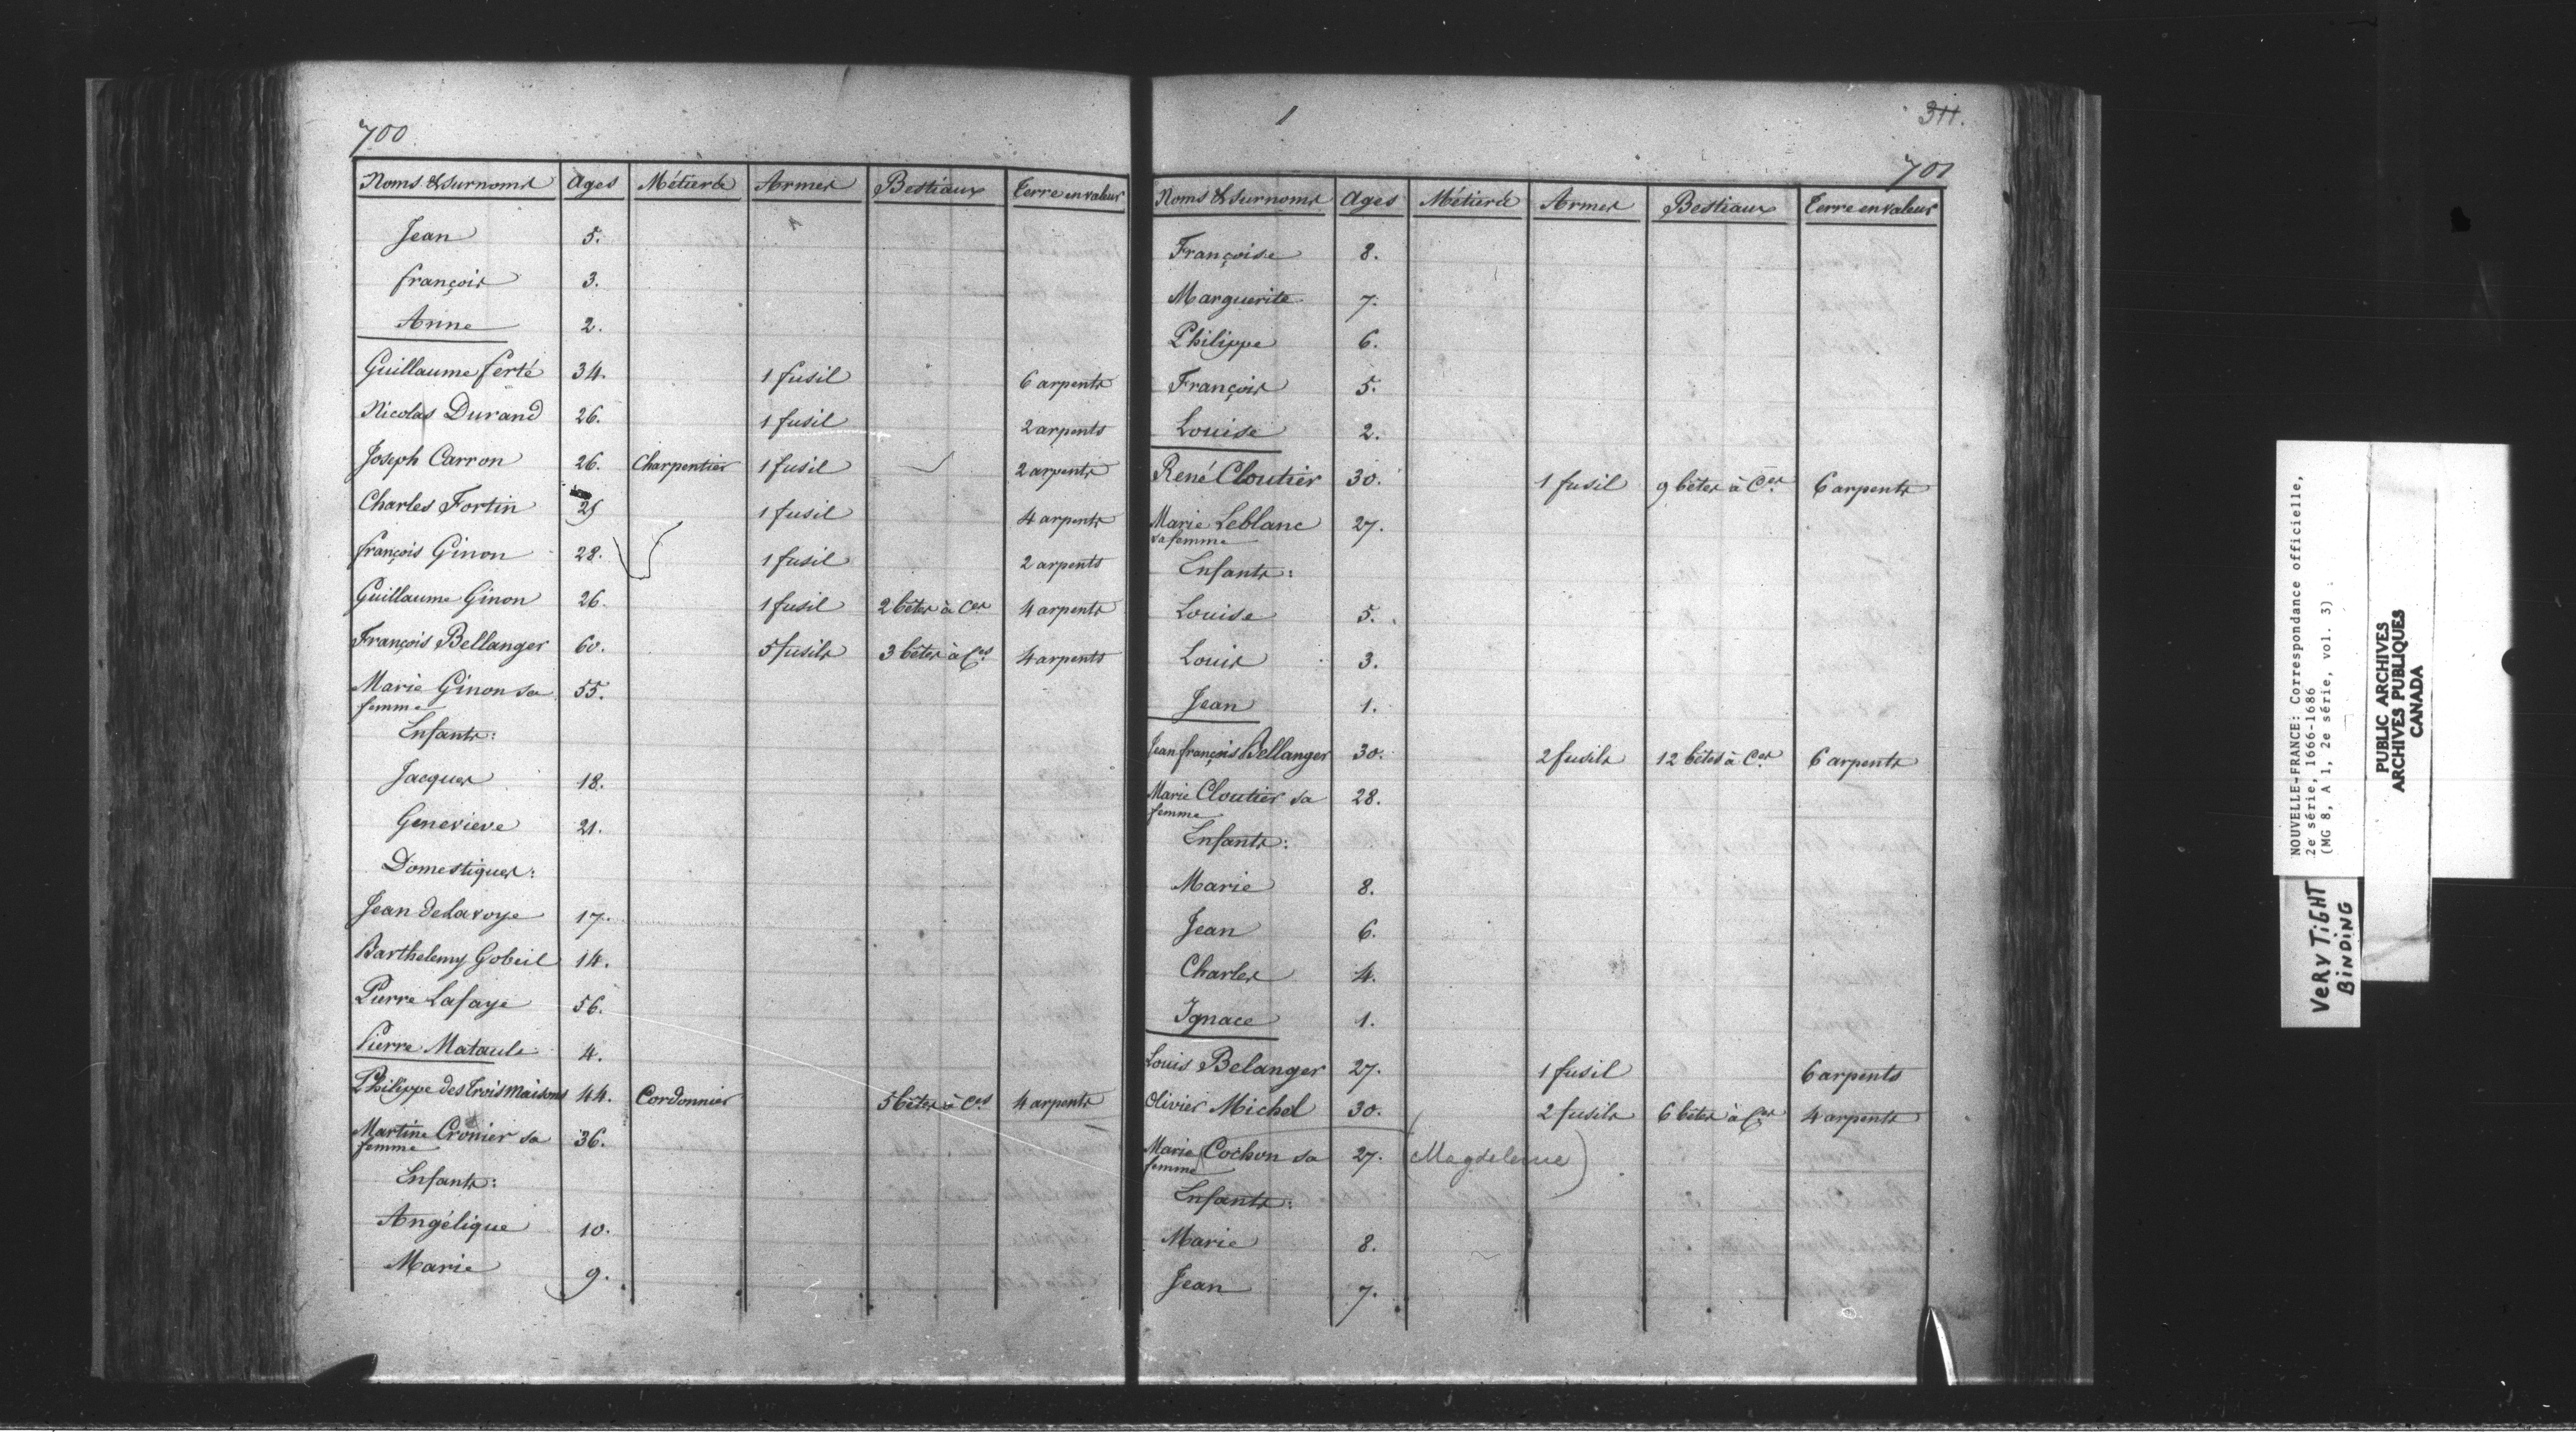 700
Noms & surnoms Ages Métiers Armes Bestiaux Terre en valeur
Jean 5.
françois 3.
Anne 2.
Guillaume ferté 34. 1 fusil 6 arpents
Nicolas Durand 26. 1 fusil 2 arpents
Joseph Carron 26. Charpentier 1 fusil 2 arpents
Charles Fortin 25 1 fusil 4 arpents
françois Ginon 28. 1 fusil 2 arpents
Guillaume Ginon 26. 1 fusil 2 bêtes à Ces 4 arpents
François Bellanger 60. 5 fusils 3 bêtes à Ces 4 arpents
Marie Ginon sa 55.
femme
Enfants:
Jacques 18.
Genevieve 21.
Domestiques:
Jean deLavoye 17.
Barthelemy Gobeil 14.
Pierre Lafaye 56.
Pierre Mataule 4.
Philippe des Trois Maisons 44. Cordonnier 5 bêtes à Ces 4 arpents
Martine Cronier sa 36.
femme
Enfants:
Angélique 10.
Marie 9.
1
311.
701
Noms & surnoms Ages Métiers Armes Bestiaux Terre en valeur
Françoise 8.
Marguerite 7.
Philippe 6.
François 5.
Louise 2.
René Cloutier 30. 1 fusil 9 bêtes à Ces 6 arpents
Marie Leblanc 27.
sa femme
Enfants:
Louise 5.
Louis 3.
Jean 1.
Jean françois Bellanger 30. 2 fusils 12 bêtes à Ces 6 arpents
Marie Cloutier sa 28.
femme
Enfants:
Marie 8.
Jean 6.
Charles 4.
Ignace 1.
Louis Belanger 27. 1 fusil 6 arpents
Olivier Michel 30. 2 fusils 6 bêtes à Ces 4 arpents
Marie Cochon sa 27. (Magdeleine)
femme
Enfants:
Marie 8.
Jean 7.
NOUVELLE-FRANCE: Correspondance officielle,
2e série, 1666-1686
(MG 8, A 1, 2e série, vol. 3)
PUBLIC ARCHIVES
ARCHIVES PUBLIQUES
CANADA
VERY TIGHT
BINDING